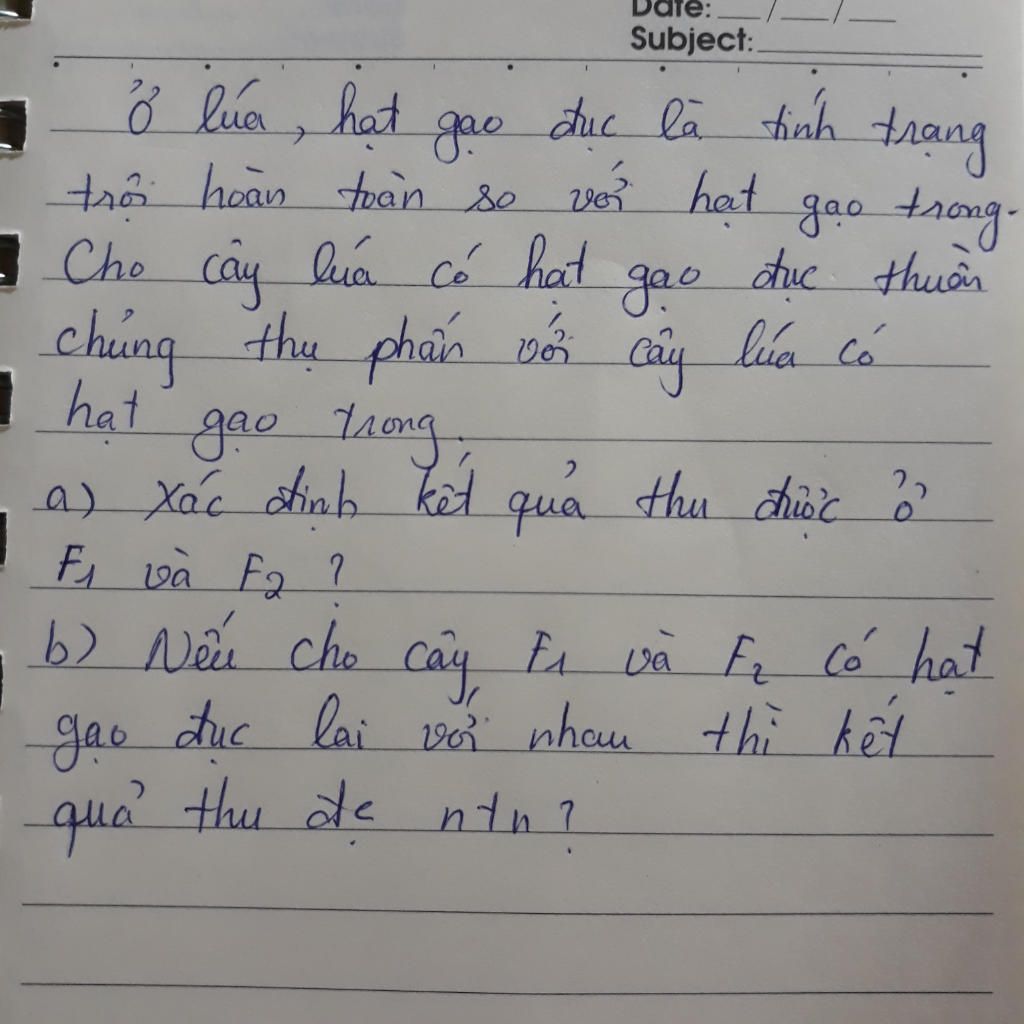 Date: __/__/__
Subject:
Ở lúa, hạt gạo đục là tính trạng
trội hoàn toàn so với hạt gạo trong.
Cho cây lúa có hạt gạo đục thuần
chủng thụ phấn với cây lúa có
hạt gạo trong.
a) Xác định kết quả thu được ở
F1 và F2 ?
b) Nếu cho cây F1 và F2 có hạt
gạo đục lai với nhau thì kết
quả thu đc ntn ?